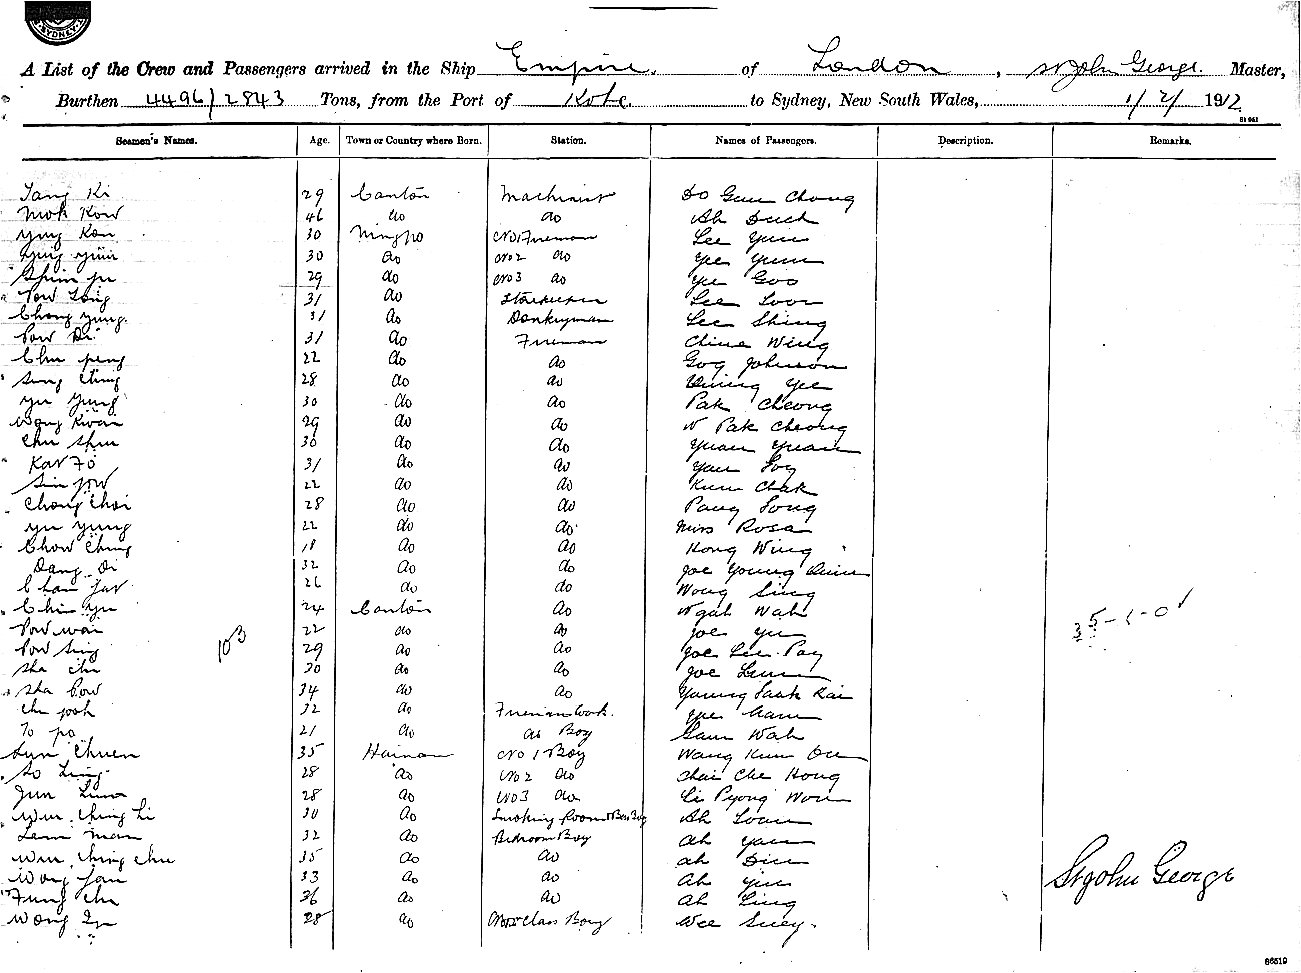 SYDNEY
A List of the Crew and Passengers arrived in the Ship Empire. of London, St John George. Master,
Burthen 4496/2843 Tons, from the Port of Kobe to Sydney, New South Wales, 1/2/ 1912
81961
Seamen's Names. Age. Town or Country where Born. Station. Names of Passengers. Description. Remarks.
Tang Ki 29 Canton Machinist Do Gun Chong
Mok Kow 46 do do Ah Duck
Ying Kow 30 Ningpo No 1 Fireman Lee Yuen
Ying Yuin 30 do No 2 do Yee Yuen
29 do No 3 do Yee Goo
Pow Ling 31 do Storekeeper Lee Loon
Chong Yung. 31 do Donkeyman Lee Shing
Pow Di 31 do Fireman China Wing
Chu Peng 22 do do Goq Johnson
Sung Ching 28 do do Yee
Yu Yung 30 do do Pak Cheong
Wong Kwan 29 do do W Pak Cheong
Chu Shu 30 do do Yuan Yuan
Kav Fo 31 do do Yau Loy
Sin Jow 22 do do Kum Chak
Chong Choi 28 do do Pang Song
Yu Yung 22 do do Miss Rosa
Chow Ching 18 do do Hong Wing
Dang Di 32 do do Joe Young
Chan Jar 26 do do Wong Sing
Chin Yu 24 Canton do Ngah Wah
35-1-0
Pow Wai 22 do do Joe Yu
103
Pow Sing 29 do do Joe Lee Pay
Sha Chu 30 do do Joe Lum
Sha Cow 34 do do Young Saak Kai
Chu Pook 32 do Fireman Cook. Yee Nam
To Po 21 do do Boy Sam Wah
Sun Chuen 35 Hainan No 1 Boy Wang Kum
So Ling 28 do No 2 do Chai Che Hong
Jun Lima 28 do No 3 do Li Pyong Won
Wuu Ching Li 30 do Smoking Room & Boy Ah Loan
Lem Man 32 do Bedroom Boy Ah Yam
Wuu Ching Chu 35 do do Ah Din
Wong Jan 33 do do Ah Yin
St John George
Fung Chu 36 do do Ah Ling
Wong 28 do Class Boy Wee Suey.
86519